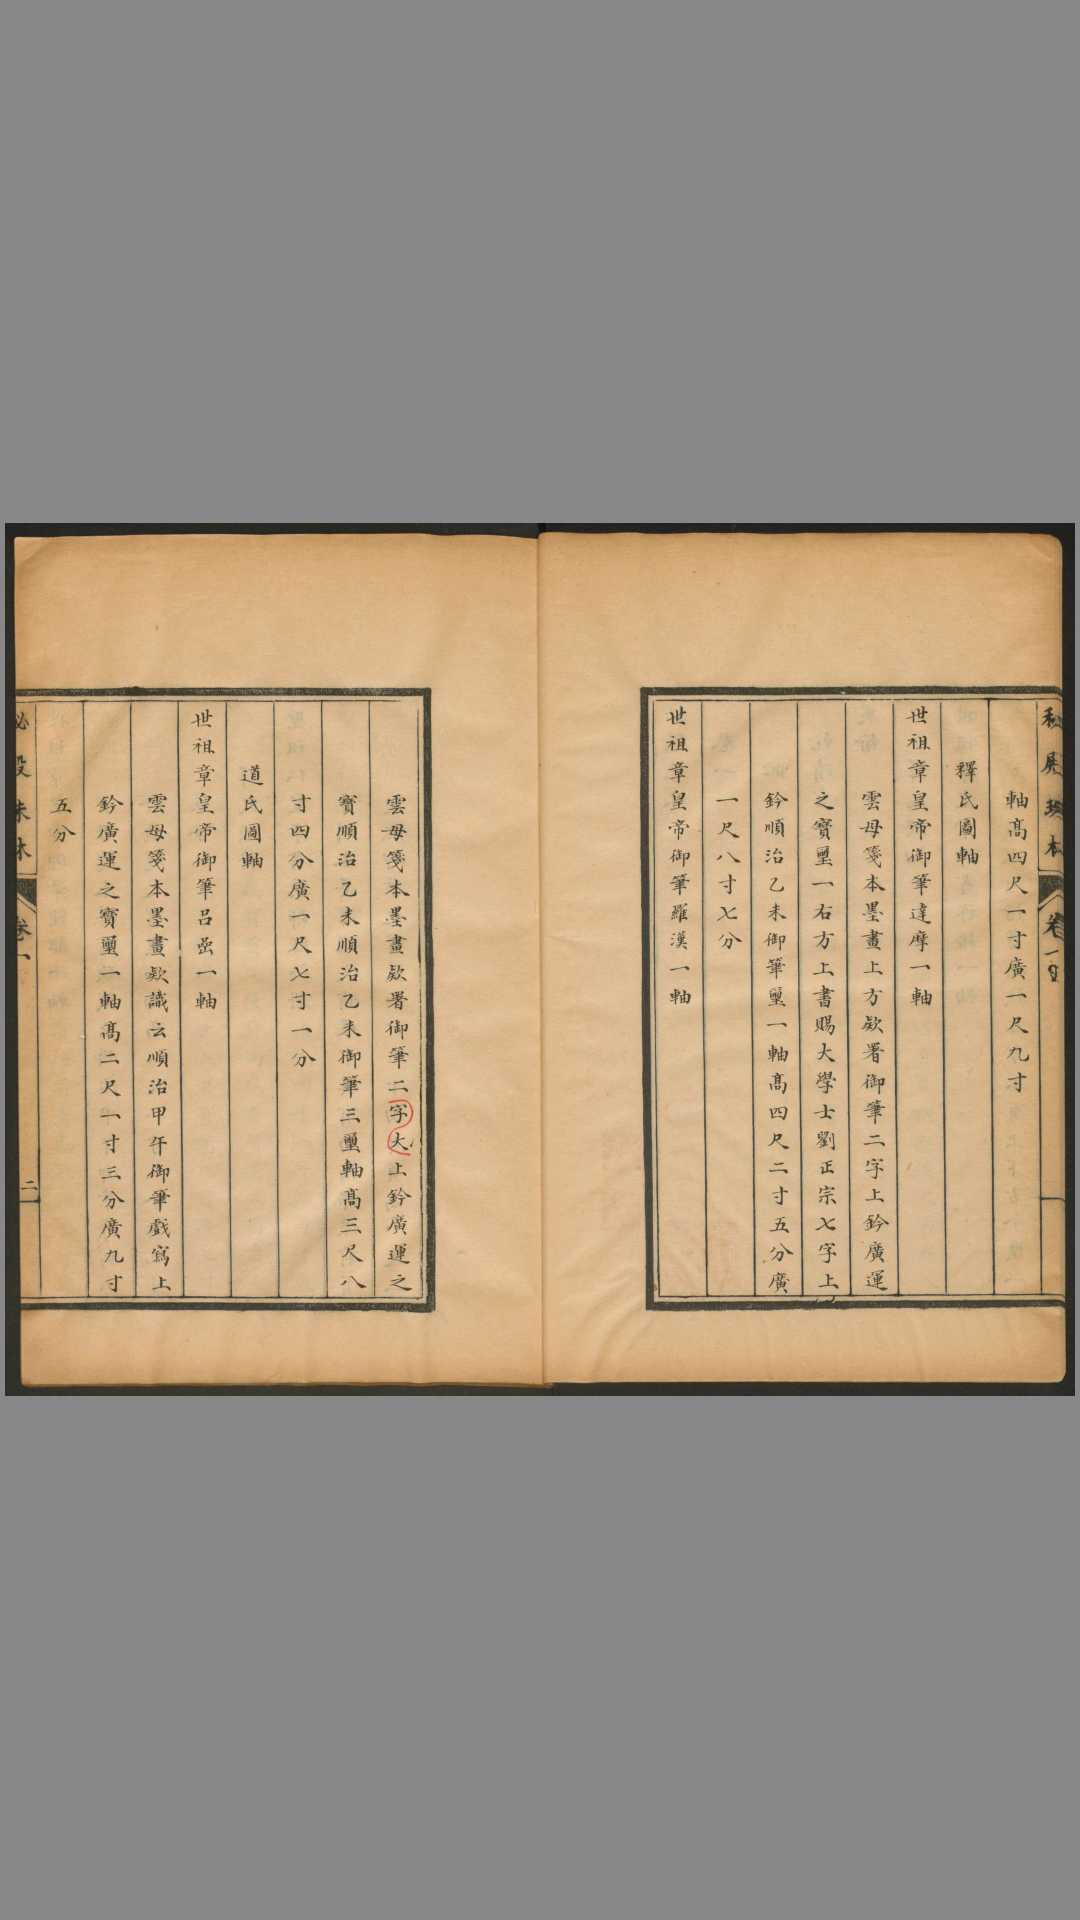 軸高四尺一寸廣一尺九寸
釋氏圖軸
世祖章皇帝御筆達摩一軸
雲母箋本墨畫上方欵署御筆二字上鈐廣運
之寶璽一右方上書賜大學士劉正宗七字上
鈐順治乙未御筆璽一軸高四尺二寸五分廣
一尺八寸七分
世祖章皇帝御筆羅漢一軸
雲母箋本墨畫欵署御筆二字大上鈐廣運之
寶順治乙未順治乙未御筆三璽軸高三尺八
寸四分廣一尺七寸一分
道氏圖軸
世祖章皇帝御筆呂嵒一軸
雲母箋本墨畫欵識云順治甲午御筆戲寫上
鈐廣運之寶璽一軸高二尺一寸三分廣九寸
五分
卷一
二